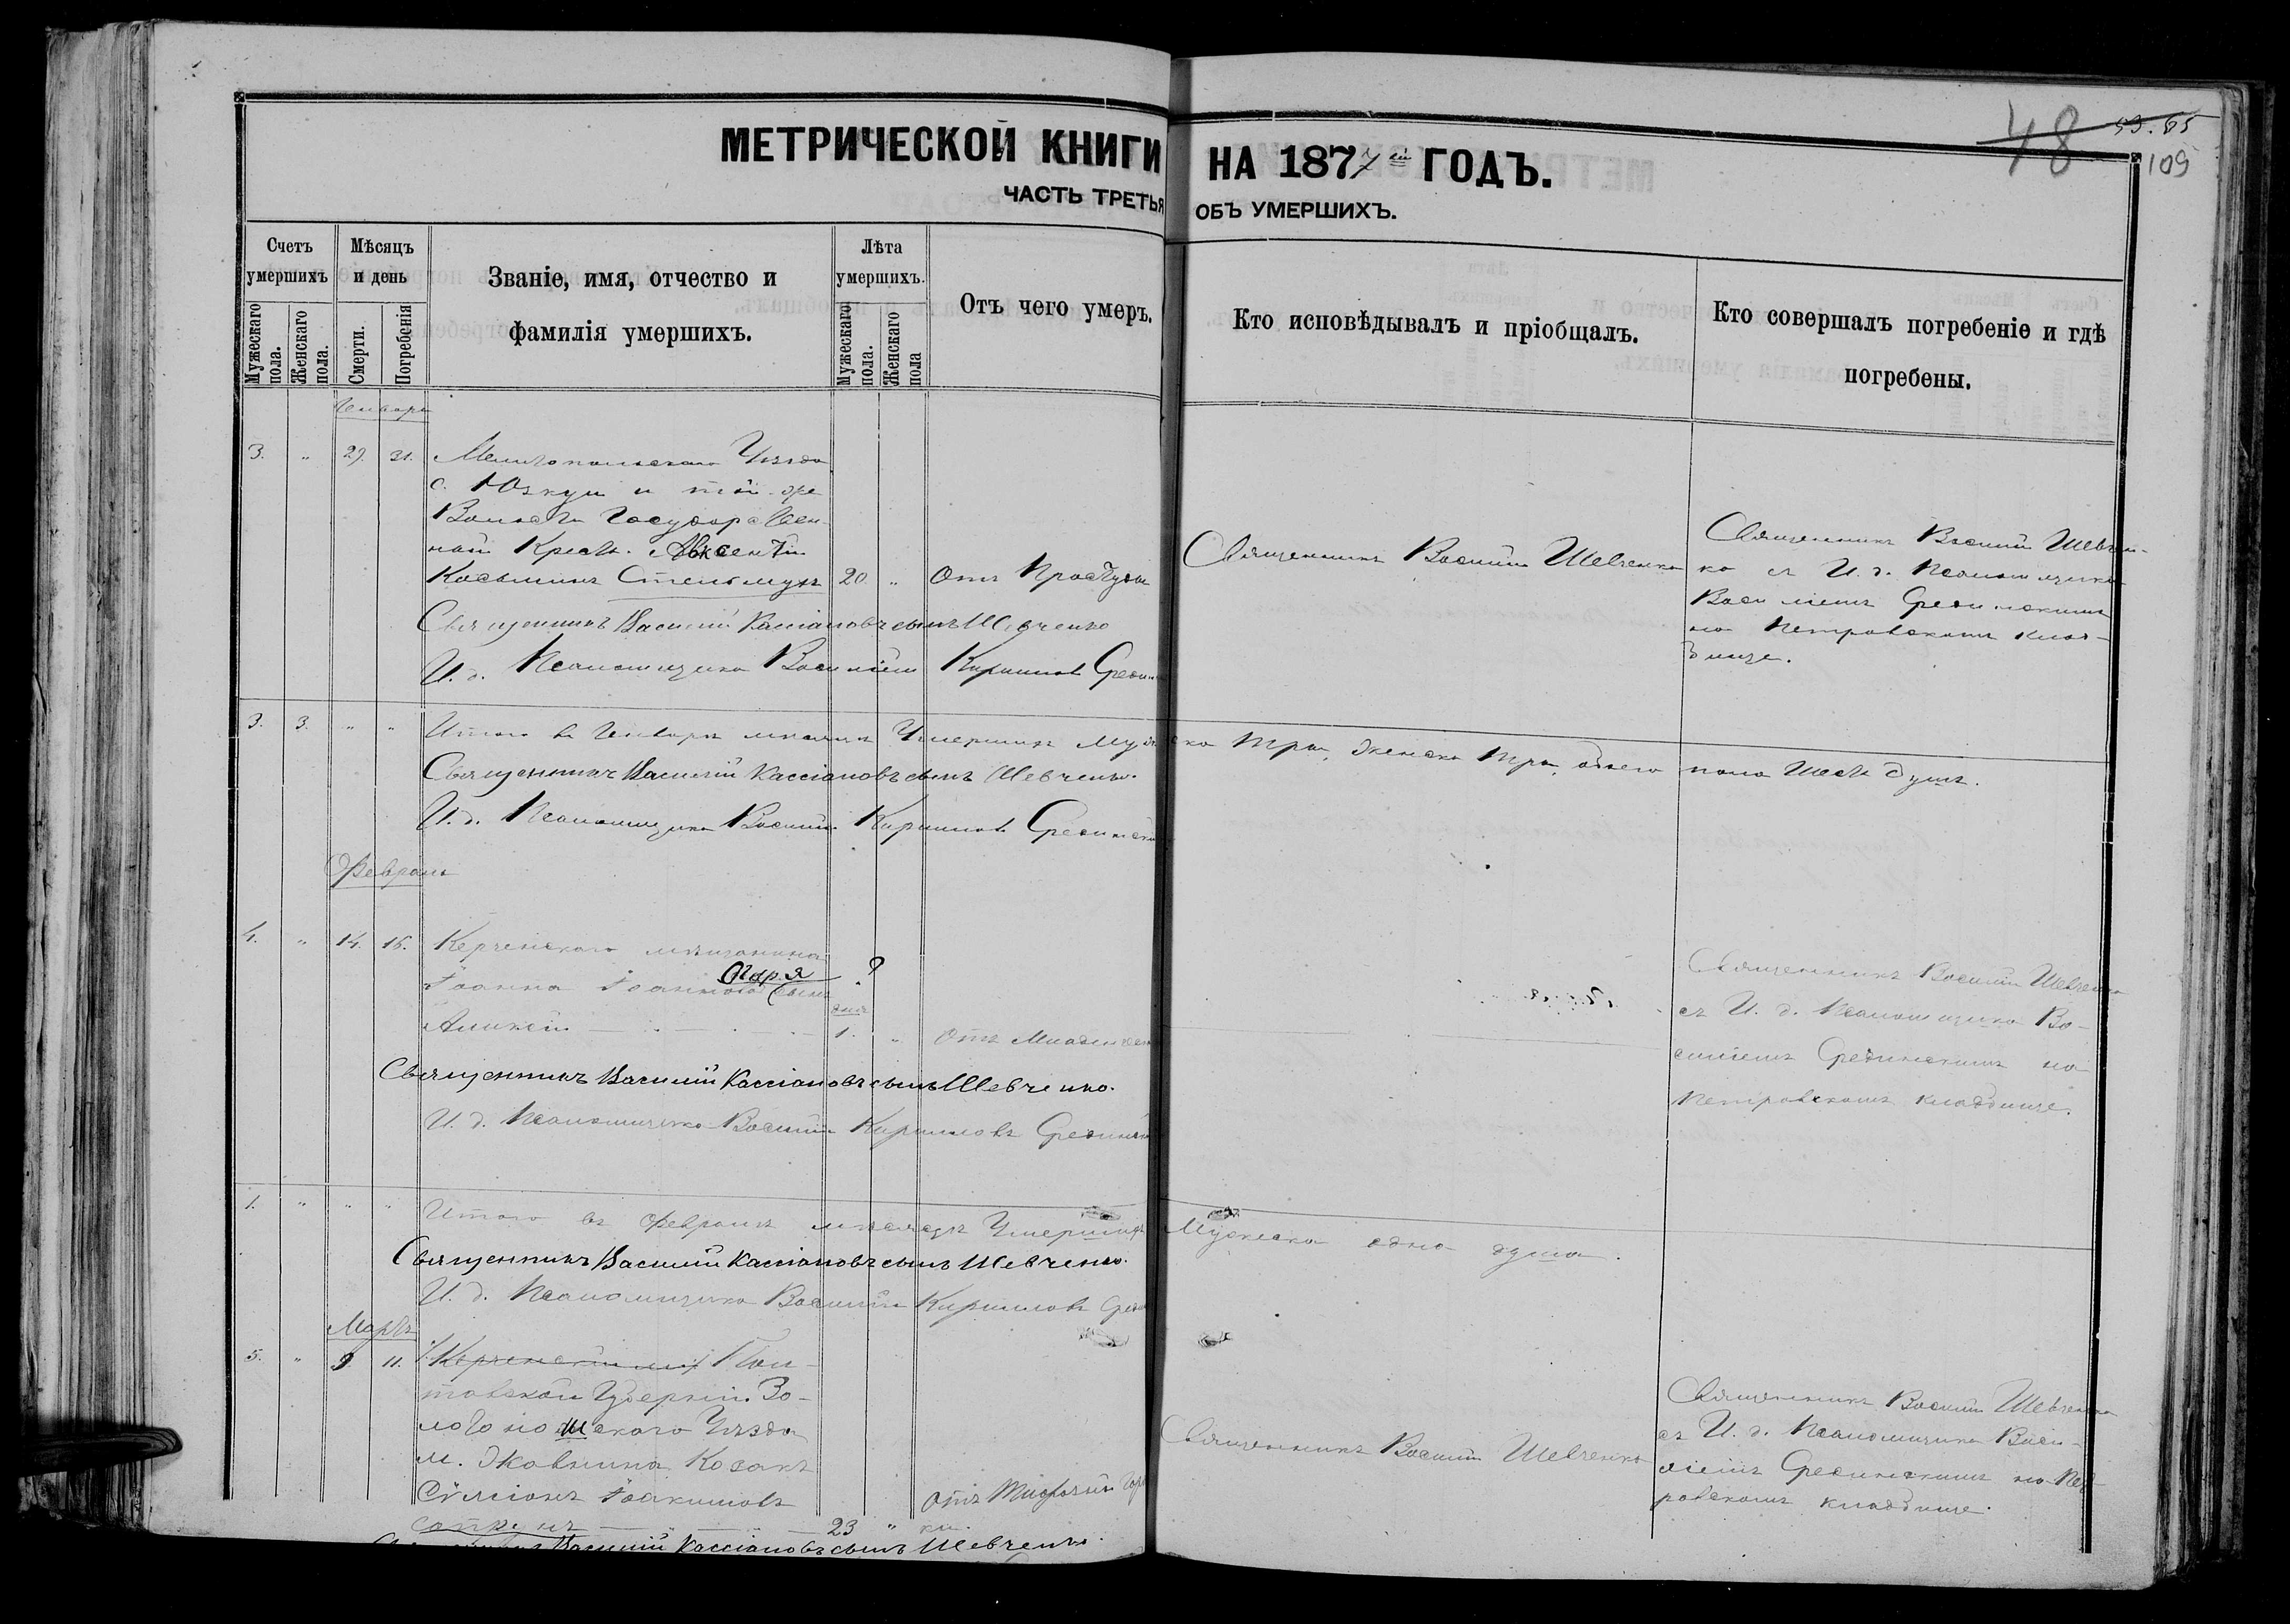 48 53. 65
109
МЕТРИЧЕСКОЙ КНИГИ НА 1877й ГОДЪ.
ЧАСТЬ ТРЕТЬЯ ОБЪ УМЕРШИХЪ.
Счетъ умершихъ
Мужескаго пола.
Женскаго пола.
Мѣсяцъ и день
Смерти.
Погребенія
Званіе, имя, отчество и
фамилія умершихъ.
Лѣта умершихъ.
Мужескаго пола.
Женскаго пола
Отъ чего умеръ.
Кто исповѣдывалъ и пріобщалъ.
Кто совершалъ погребеніе и гдѣ
погребены.
Генварь
3. " 29. 31. Мелитопольскаго Уѣзда
с. Юзкуи и той-же
Волости Государствен-
ный Крест. Авксентій
Косьминъ Стельмухъ 20 " Отъ Простуды
Священникъ Василій Шевченко
Священникъ Василій Шевчен-
ко съ И. д. Псаломщика
Василіемъ Срединскимъ
на Петровскомъ клад-
бище.
Священникъ Василій Кассіановъ сынъ Шевченко
И. д. Псаломщика Василій Кириллов
3. 3. " " Итого въ Генварѣ мѣсяцѣ Умершихъ Мужеска три, женска три, обоего пола шесть душъ.
Священникъ Василій Кассіановъ сынъ Шевченко.
И. д. Псаломщика Василій Кириллов
Февраль
4. " 14. 16. Керченскаго мѣщанина
Іоанна Іоаннова сынъ
?
Алексій 1. " Отъ
Священникъ Василій Шевченко
съ И. д. Псаломщика Ва-
силіемъ Срединскимъ на
Петровскомъ кладбище.
Священникъ Василій Кассіановъ сынъ Шевченко.
И. д. Псаломщика Василій Кирилловъ
1. " " " Итого въ Февралѣ мѣсяцѣ Умершихъ Мужеска одна душа.
Священникъ Василій Кассіановъ сынъ Шевченко.
И. д. Псаломщика Василій Кирилловъ
Мартъ
5. " 9 11. Керченскій Пол-
тавской Губерніи Зо-
лотоношскаго Уѣзда
м. Жовнина Козакъ
Сѵмеонъ Іоакимовъ
23 " Отъ
Священникъ Василій Шевченко
Священникъ Василій Шевченко
съ И. д. Псаломщика Васи-
ліемъ Срединскимъ на Пет-
ровскомъ кладбище.
Василій Кассіановъ сынъ Шевченко.